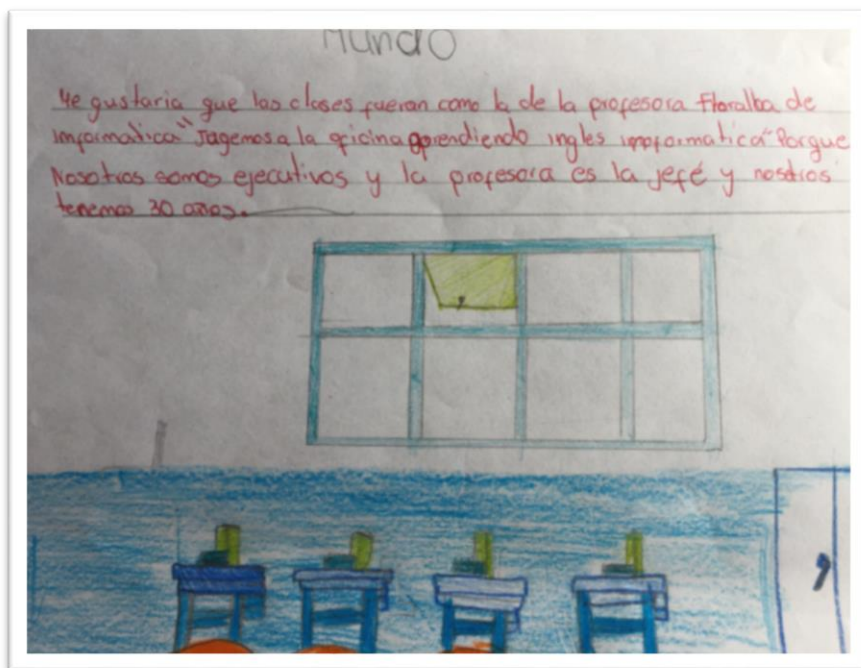 Mundo
Me gustaria que las clases fueran como la de la profesora Floralba de
imformatica "Jugemos a la oficina aprendiendo ingles imformatica" Porque
Nosotros somos ejecutivos y la profesora es la jefé y nosotros
tenemos 30 años.